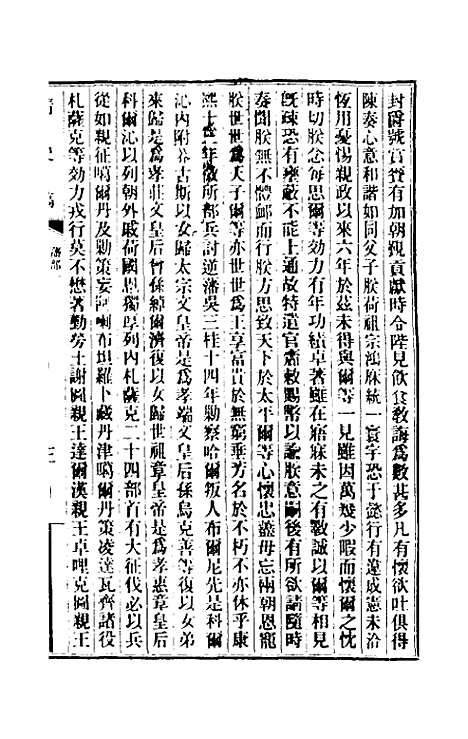 封爵號賞賚有加朝覲貢獻時令陛見飲食敎誨爲數甚多凡有懷欲吐俱得
陳奏心意和諧如同父子朕荷祖宗鴻庥統一寰宇恐于懿行有違成憲未洽
恆用憂惕親政以來六年於茲未得與爾等一見雖因萬幾少暇而懷爾之忱
時切朕念每思爾等効力有年功績卓著雖在寤寐未之有斁誠以爾等相見
旣疎恐有壅蔽不能上通故特遣官齎敕賜幣以諭朕意嗣後有所欲請隨時
奏聞朕無不體卹而行朕方思致天下於太平爾等心懷忠藎毋忘兩朝恩寵
朕世世爲天子爾等亦世世爲王享富貴於無窮垂芳名於不朽不亦休乎康
熙十三年徵所部兵討逆藩吳三桂十四年勦察哈爾叛人布爾尼先是科爾
沁內附莽古斯以女歸太宗文皇帝是爲孝端文皇后孫烏克善等復以女弟
來歸是爲孝莊文皇后曾孫綽爾濟復以女歸世祖章皇帝是爲孝惠章皇后
科爾沁以列朝外戚荷國恩獨厚列內札薩克二十四部首有大征伐必以兵
從如親征噶爾丹及勦策妄阿喇布坦羅卜藏丹津噶爾丹策凌達瓦齊諸役
札薩克等効力戎行莫不懋著勤勞土謝圖親王達爾漢親王卓哩克圖親王
清史稿
藩部一